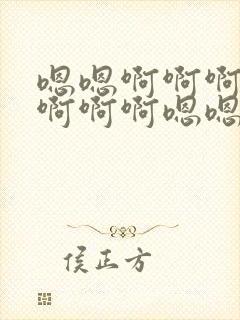 嗯嗯啊啊啊
啊啊啊嗯嗯
侯正方